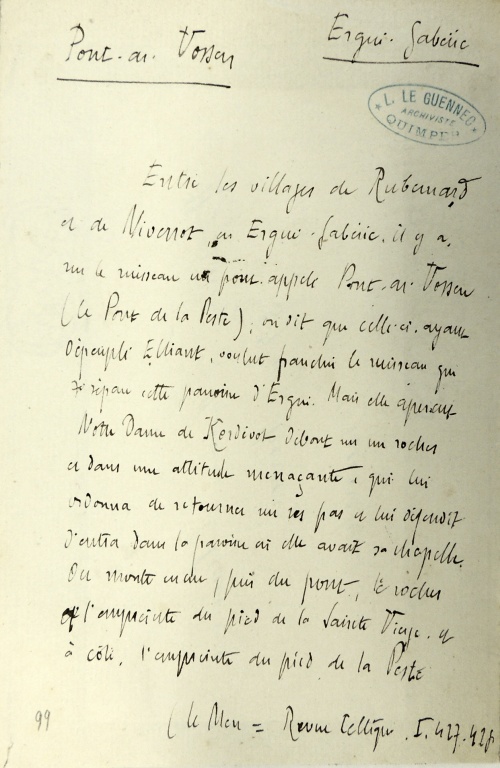 Pont-ar-Vossen
Ergué-Gabéric
L. LE GUENNEC
ARCHIVISTE
QUIMPER
Entre les villages de Rubernard
et de Niverrot, en Ergué-Gabéric, il y a,
sur le ruisseau un pont appelé Pont-ar-Vossen
(Le Pont de la Peste); on dit que celle-ci, ayant
dépeuplé Elliant, voulut franchir le ruisseau qui
sépare cette paroisse d'Ergué. Mais elle aperçut
Notre Dame de Kerdévot debout sur un rocher
et dans une attitude menaçante, qui lui
ordonna de retourner sur ses pas et lui défendit
d'entrer dans la paroisse où elle avait sa chapelle.
On montre encore, près du pont, le rocher
et l'empreinte du pied de la Sainte Vierge, et
à côté, l'empreinte du pied de la Peste
(Le Men = Revue Celtique, I. 427-428)
99